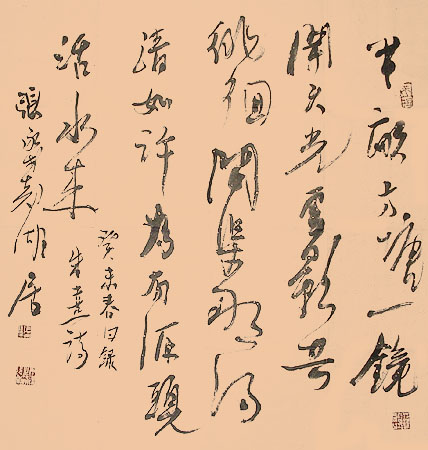 半畝方塘一鏡
開天光雲影共
徘徊問渠那得
清如許為有源頭
活水來朱熹詩
癸未春日錄
張湖居